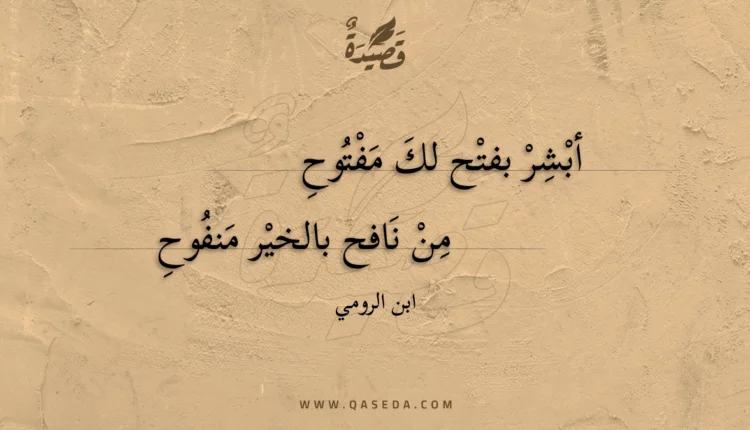 قَصِيدَةٌ
أبْشِرْ بفتْح لكَ مَفْتُوحِ
مِنْ نَافح بالخيْر مَنفُوحِ
ابن الرومي
WWW.QASEDA.COM